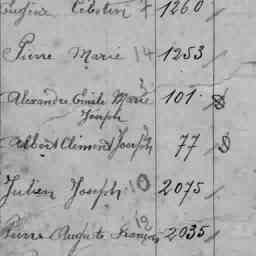 Eugène Célestin 7 1260
Pierre Marie 14 1253
Alexandre Emile Marie 101
Joseph
Albert Clément Joseph 77
Julien Joseph 10 2075
Pierre Auguste François 2035